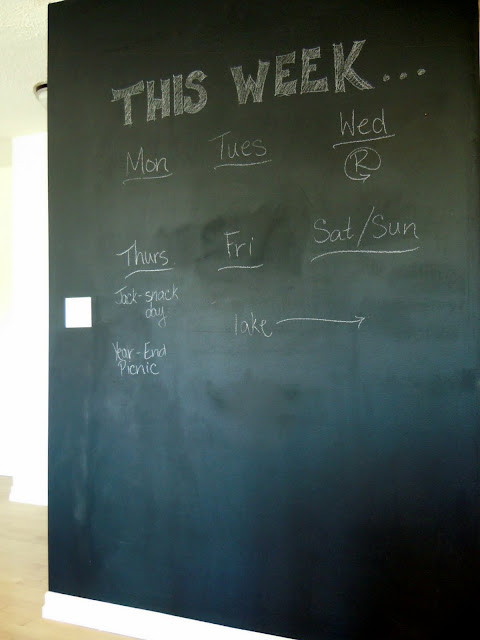 THIS WEEK...
Mon Tues Wed
R
Thurs Fri Sat/Sun
Jack-snack
day
lake
Year-End
Picnic